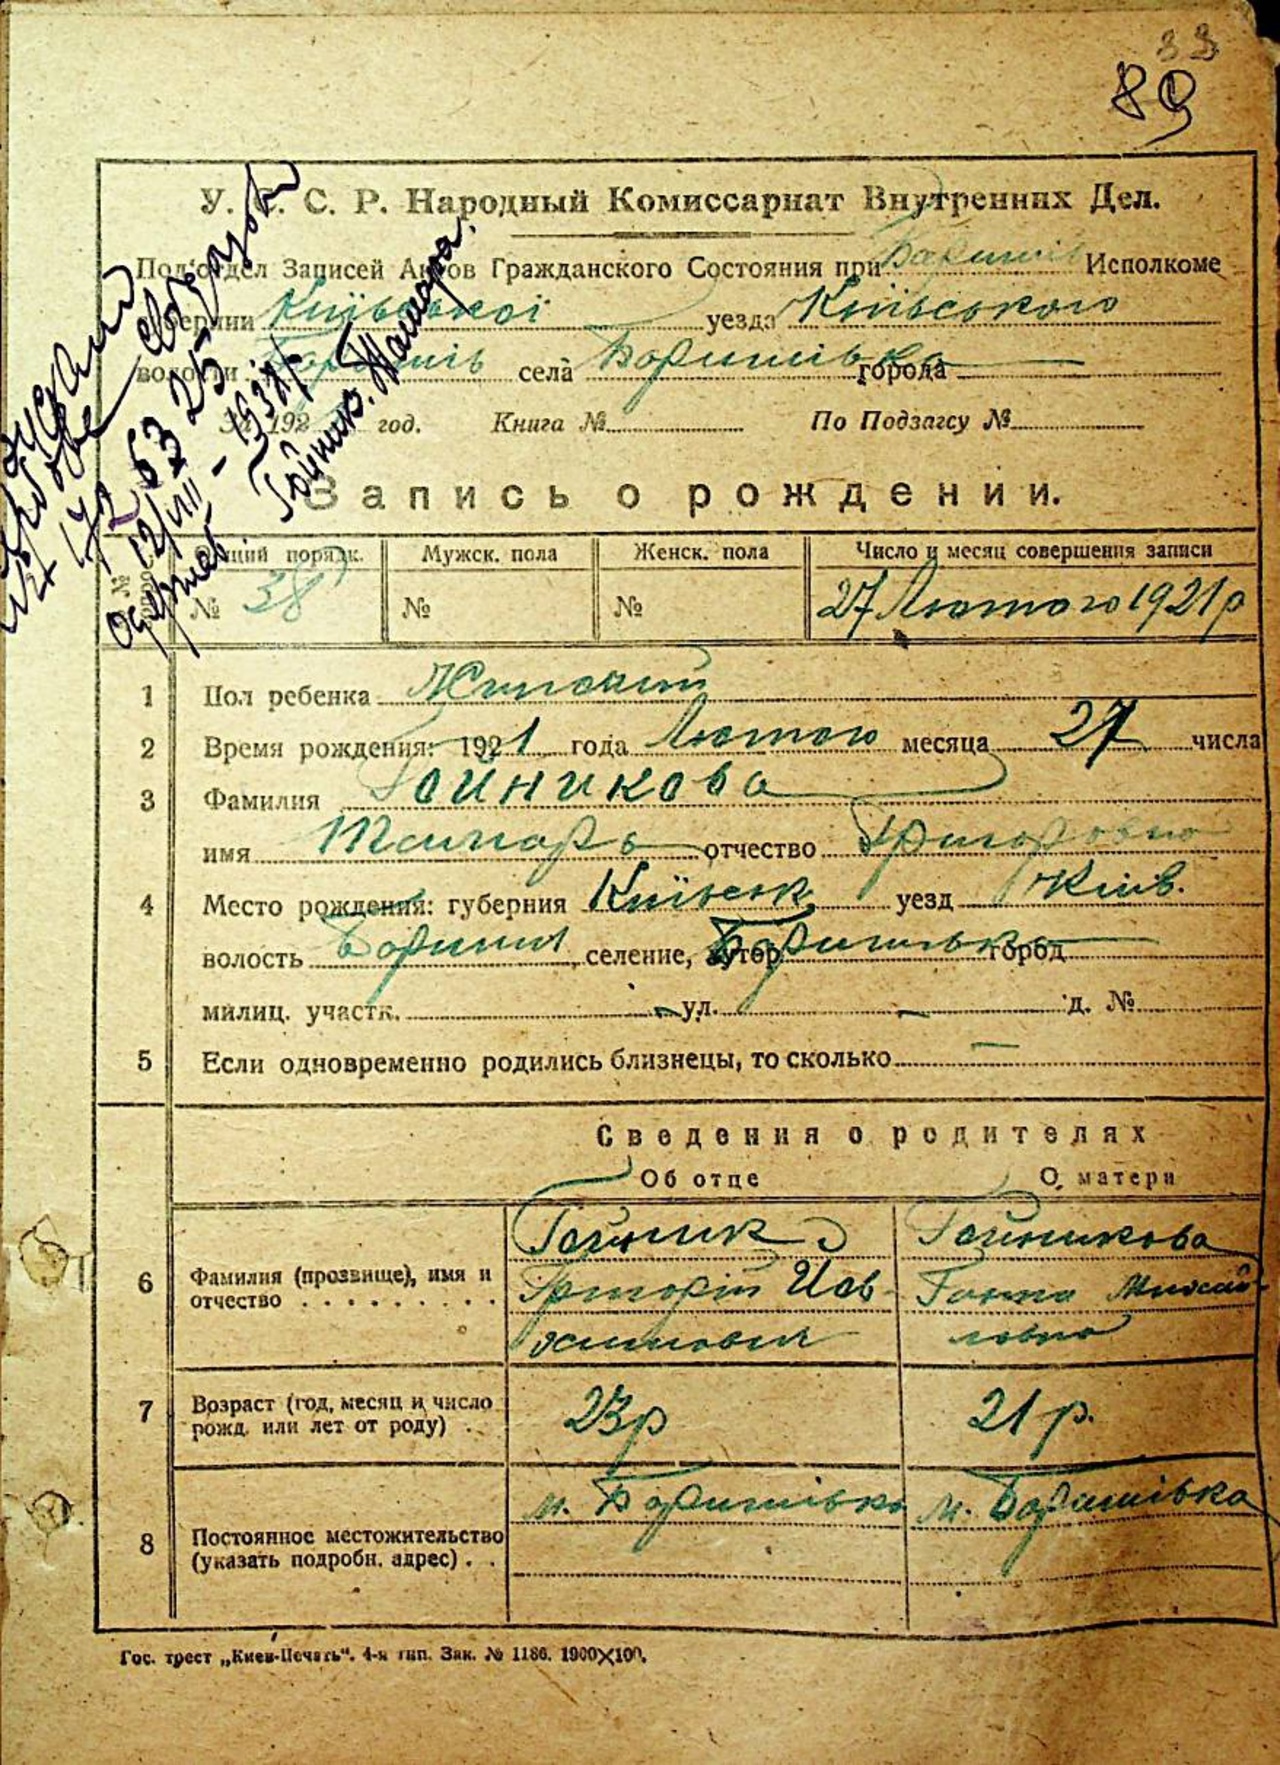 33
89
У. С. С. Р. Народный Комиссариат Внутренних Дел.
Под'отдел Записей Актов Гражданского Состояния при Исполкоме
губернии Київської уезда Київського
волости села города
За 192 год. Книга № По Подзагсу №
Запись о рождении.
Общий порядк. Мужск. пола Женск. пола Число и месяц совершения записи
№ 38 № № 27 Лютого 1921 р
172 63 25
12/VIII - 1937
Гойник. Тамара.
1 Пол ребенка
2 Время рождения: 1921 года Лютого месяца 27 числа
3 Фамилия Гойникова
имя Тамара отчество Григоровна
4 Место рождения: губерния Київськ уезд Київ.
волость селение, хутор город
милиц. участк. — ул. — д. №
5 Если одновременно родились близнецы, то сколько —
Сведения о родителях
Об отце О матери
6 Фамилия (прозвище), имя и отчество . . . . . . . . .
Гойник
Григорій
Гойникова
Ганна Михай-
ловна
7 Возраст (год, месяц и число рожд. или лет от роду) . .
23 р
21 р.
8 Постоянное местожительство (указать подробн. адрес) . .
м.
м.
Гос. трест „Киев-Печать". 4-я тип. Зак. № 1186. 1900×100.